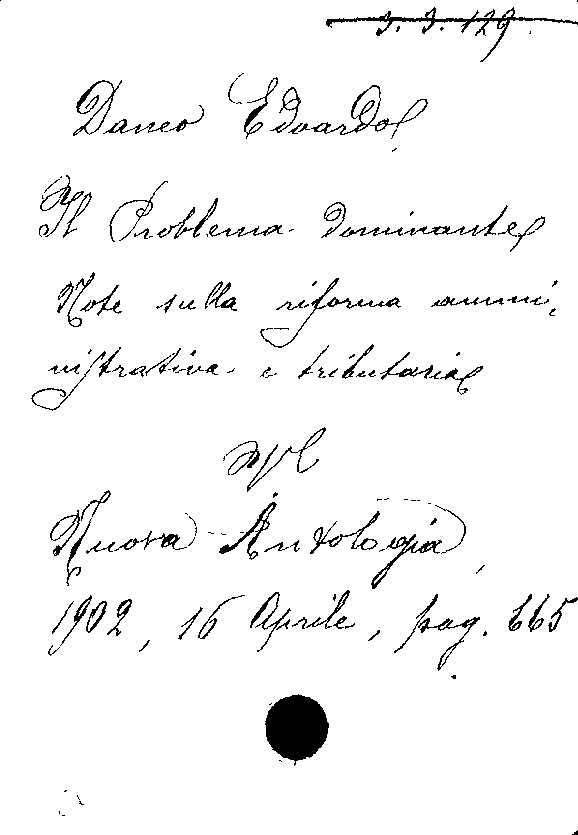 3. 3. 129.
Daneo Edoardo
Il Problema dominante
Note sulla riforma ammi,
nistrativa e tributaria
nel
Nuova Antologia,
1902, 16 Aprile, pag. 665